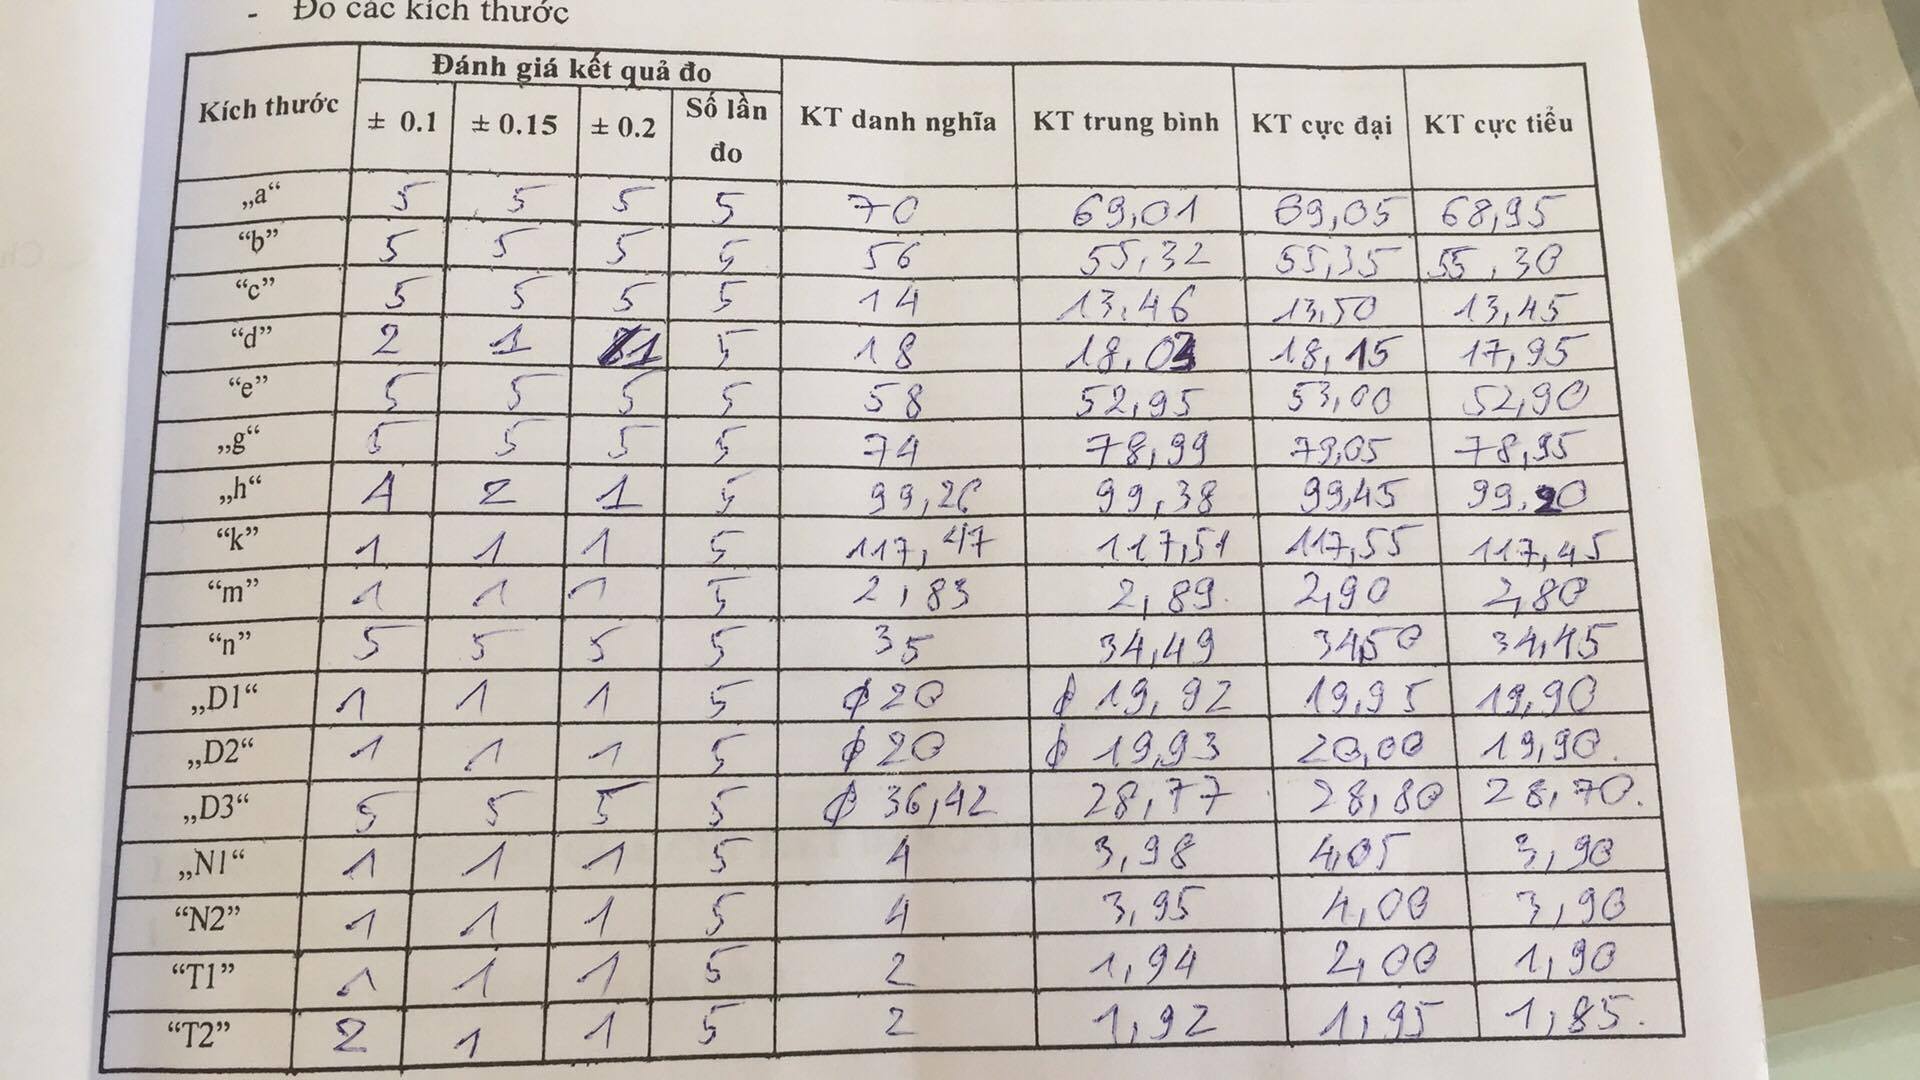 - Đo các kích thước
Kích thước | Đánh giá kết quả đo | KT danh nghĩa | KT trung bình | KT cực đại | KT cực tiểu
± 0.1 | ± 0.15 | ± 0.2 | Số lần đo
„a“ 5 5 5 5 70 69,01 69,05 68,95
“b” 5 5 5 5 56 55,32 55,35 55,30
“c” 5 5 5 5 14 13,46 13,50 13,45
“d” 2 1 1 5 18 18,03 18,15 17,95
“e” 5 5 5 5 58 52,95 53,00 52,90
„g“ 5 5 5 5 74 78,99 79,05 78,95
„h“ 4 2 1 5 99,26 99,38 99,45 99,20
“k” 1 1 1 5 117,47 117,51 117,55 117,45
“m” 1 1 1 5 2,83 2,89 2,90 2,80
“n” 5 5 5 5 35 34,49 34,50 34,45
„D1“ 1 1 1 5 ϕ20 ϕ 19,92 19,95 19,90
„D2“ 1 1 1 5 ϕ20 ϕ 19,93 20,00 19,90.
„D3“ 5 5 5 5 ϕ 36,42 28,77 28,80 28,70.
„N1“ 1 1 1 5 4 3,98 4,05 3,90
“N2” 1 1 1 5 4 3,95 4,00 3,90
“T1” 1 1 1 5 2 1,94 2,00 1,90
“T2” 2 1 1 5 2 1,92 1,95 1,85.